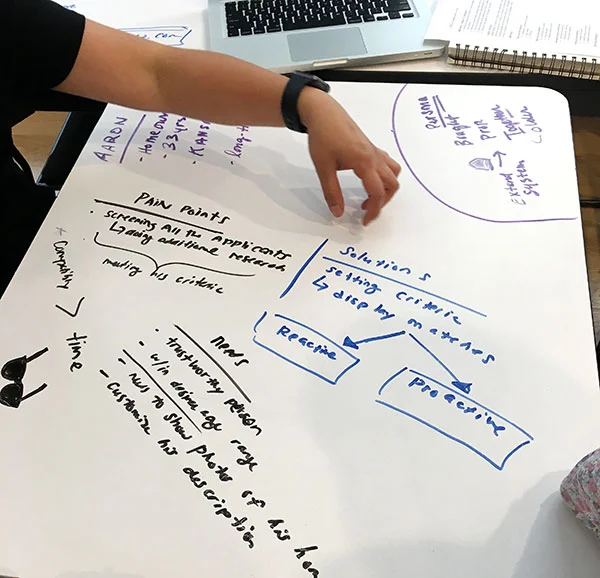 AARON
- Homeown
- 33 yrs
- KANS
- long-t
Persona
Bought
Pron
Together
older
Extend →
System
PAIN Points
· screening All the Applicants
↳ doing additional research
meeting his criteria
+ Compatibility > time
Solutions
setting criteria
↳ display matches
Reactive
Proactive
needs
- trustworthy person
- w/in desired age range
- needs to show photos of his hom
- customize his description